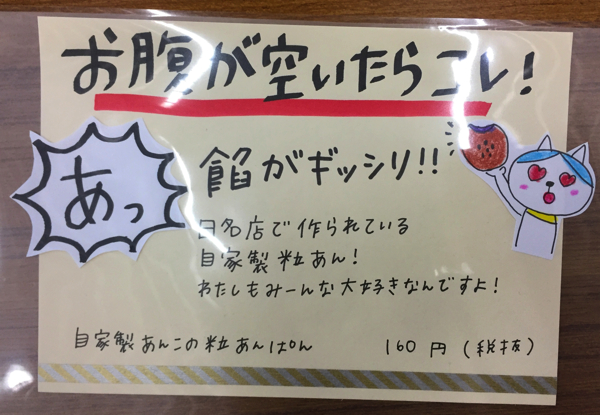 お腹が空いたらコレ!
あっ
餡がギッシリ!!
日名店で作られている
自家製粒あん!
わたしもみーんな大好きなんですよ!
自家製あんこの粒あんぱん 160円(税抜)